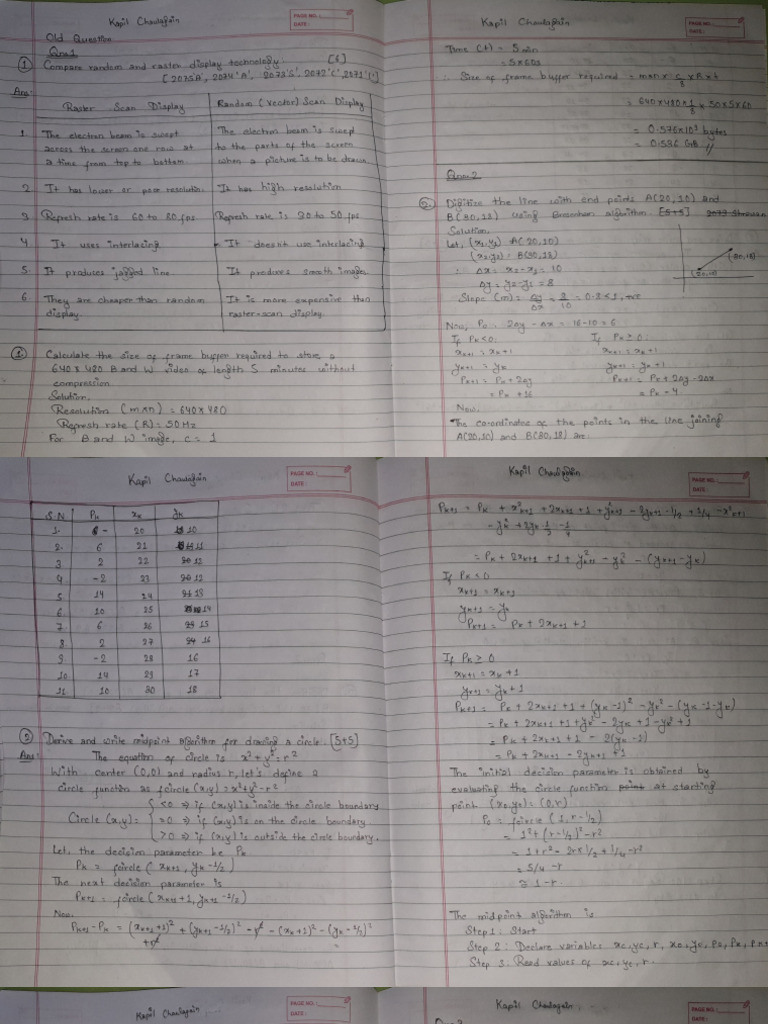 Kapil Chaulagain
PAGE NO.:
DATE:
Old Question
Qno.1
① Compare random and raster display technology. [6]
[2075'A', 2074 'A', 2073'S', 2072'C', 2071'
Ans:
Raster Scan Display
Random (Vector) Scan Display
1. The electron beam is swept across the screen one row at a time from top to bottom.
The electron beam is swept to the parts of the screen when a picture is to be drawn.
2. It has lower or poor resolution.
It has high resolution
3 Refresh rate is 60 to 80 fps
Refresh rate is 30 to 50 fps
4 It uses interlacing
It doesn't use interlacing
5. It produces jagged line.
It produces smooth image.
6. They are cheaper than random display.
It is more expensive than raster-scan display.
Calculate the size of frame buffer required to store a
640 x 480 B and W video of length 5 minutes without
compression
Solution,
Resolution (m×n) = 640×480
Refresh rate (R) = 50 Hz
For B and W image, c = 1
Kapil Chaulagain
PAGE NO.:
DATE:
Time (t) = 5 min
= 5×60s
∴ Size of frame buffer required = m×n × c/8 × R × t
= 640×480×1/8 × 50×5×60
= 0.576×10⁹ bytes
= 0.586 GB //
Qno.2
Digitize the line with end points A(20,10) and
B(30,18) using Bresenham algorithm. [5+5]
Solution,
Let, (x1,y1) = A(20,10)
(x2,y2) = B(30,18)
∴ Δx = x2-x1 = 10
Δy = y2-y1 = 8
Slope (m) = Δy/Δx = 8/10 = 0.8<1, +ve
(30,18)
(20,10)
Now, P0 = 2Δy - Δx = 16-10 = 6
If Pk<0:
If Pk≥0:
xk+1 = xk+1
xk+1 = xk+1
yk+1 = yk
yk+1 = yk+1
Pk+1 = Pk+2Δy
Pk+1 = Pk+2Δy-2Δx
= Pk+16
= Pk-4
Now,
The co-ordinates of the points in the line joining
A(20,10) and B(30,18) are:
Kapil Chaulagain
PAGE NO.:
DATE:
S.N Pk xk yk
1. - 20 10
2. 6 21 11
3 2 22 12
4 -2 23 12
5 14 24 13
6. 10 25 14
7. 6 26 15
8. 2 27 16
9. -2 28 16
10. 14 29 17
11. 10 30 18
Derive and write midpoint algorithm for drawing a circle. [5+5]
Ans:
The equation of circle is x²+y²=r²
With center (0,0) and radius r, let's define a
circle function as fcircle (x,y) = x²+y²-r²
Circle (x,y) =
<0 ⇒ if (x,y) is inside the circle boundary
=0 ⇒ if (x,y) is on the circle boundary.
>0 ⇒ if (x,y) is outside the circle boundary.
Let, the decision parameter be Pk
Pk = fcircle (xk+1, yk-1/2)
The next decision parameter is
Pk+1 = fcircle (xk+1+1, yk+1-1/2)
Now,
Pk+1-Pk = (xk+1+1)² + (yk+1-1/2)² - r² - (xk+1)² - (yk-1/2)²
+r²
Kapil Chaulagain
PAGE NO.:
DATE:
Pk+1 = Pk + x²k+1 + 2xk+1 + 1 + y²k+1 - 2yk+1·1/2 + 1/4 - x²k+1
- yk² + 2yk·1/2 - 1/4
= Pk + 2xk+1 + 1 + y²k+1 - yk² - (yk+1-yk)
If Pk<0
xk+1 = xk+1
yk+1 = yk
Pk+1 = Pk + 2xk+1 + 1
If Pk ≥ 0
xk+1 = xk+1
yk+1 = yk-1
Pk+1 = Pk + 2xk+1 + 1 + (yk-1)² - yk² - (yk-1-yk)
= Pk + 2xk+1 + 1 + yk² - 2yk + 1 - yk² + 1
= Pk + 2xk+1 + 1 - 2(yk-1)
= Pk + 2xk+1 - 2yk+1 + 1
The initial decision parameter is obtained by
evaluating the circle function at starting
point (x0,y0) = (0,r)
P0 = fcircle (1, r-1/2)
= 1² + (r-1/2)² - r²
= 1 + r² - 2r×1/2 + 1/4 - r²
= 5/4 - r
≅ 1-r
The midpoint algorithm is
Step 1: Start
Step 2: Declare variables xc, yc, r, x0, y0, P0, Pk, Pk+1
Step 3: Read values of xc, yc, r.
Kapil Chaulagain
PAGE NO.:
DATE:
Kapil Chaulagain
PAGE NO.:
DATE: